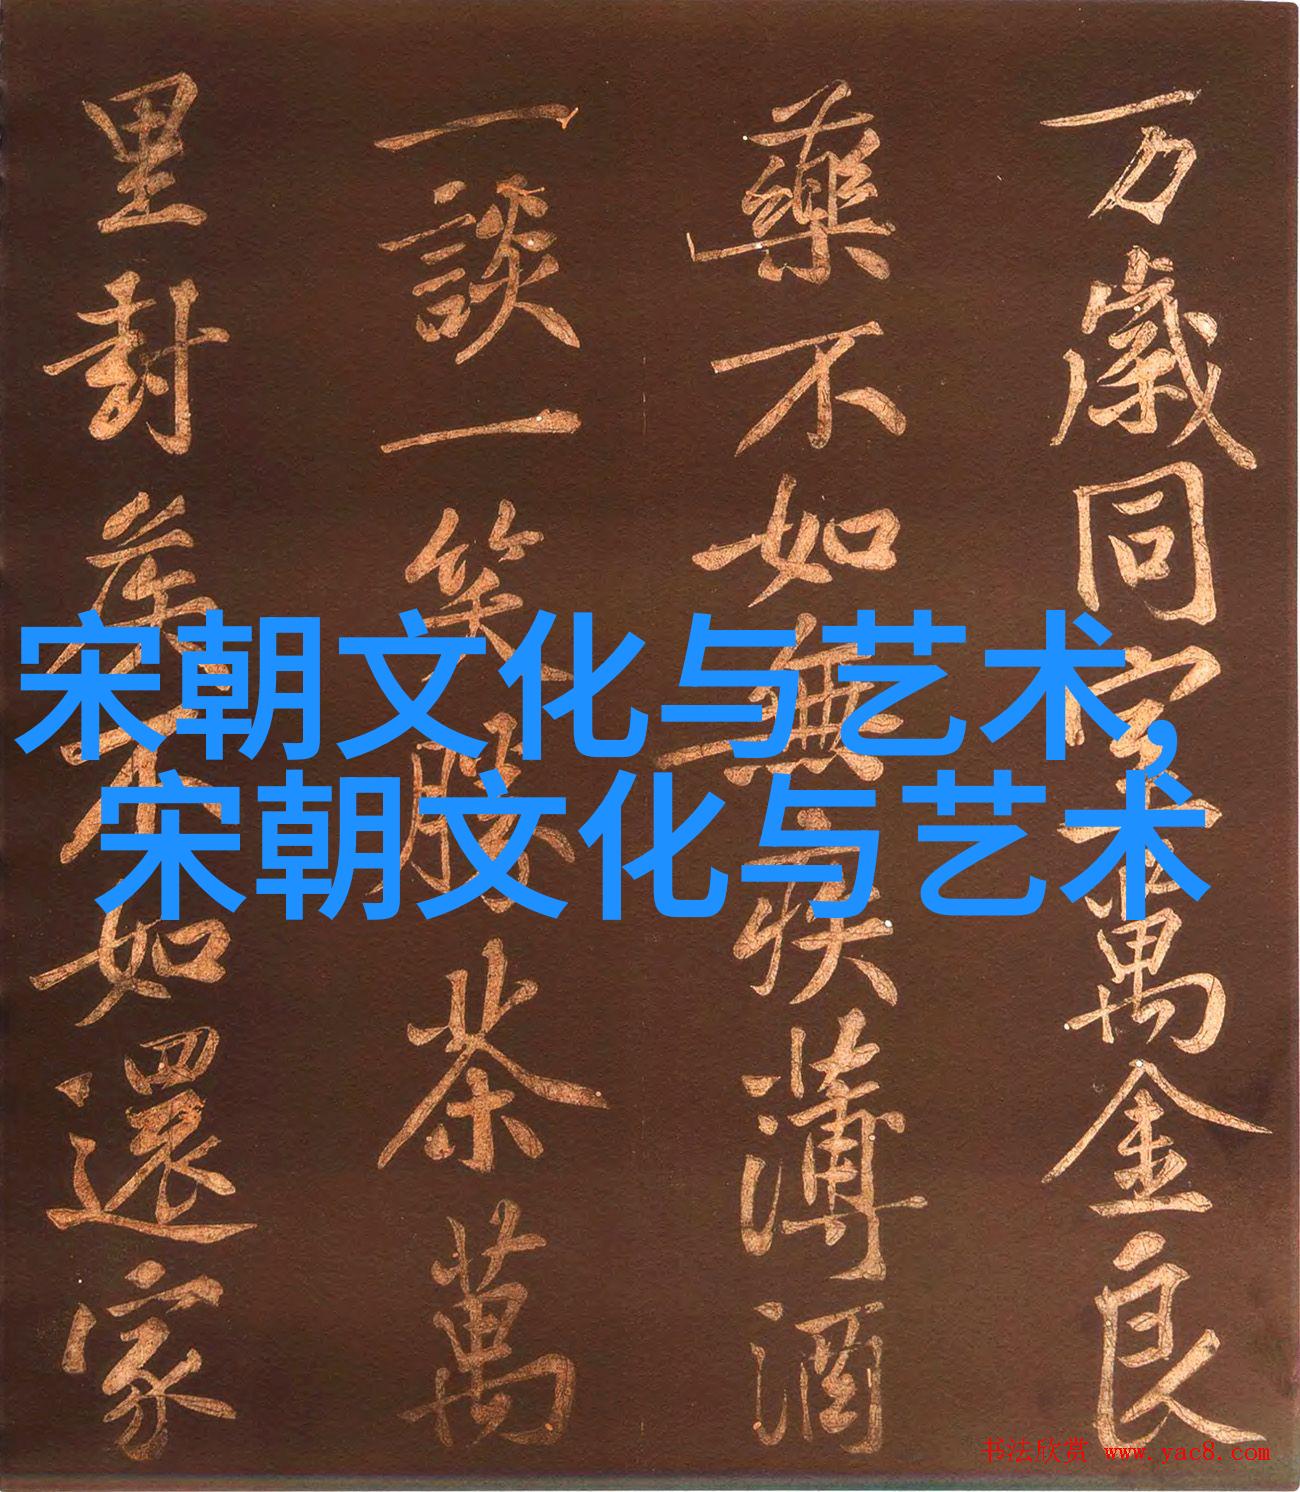 万歲同室萬金良
藥不如無疾薄酒
一談一笑勝茶萬
里封侯不如還家
宋朝文化与艺术,
宋朝文化与艺术
书法欣赏 www.yac8.com